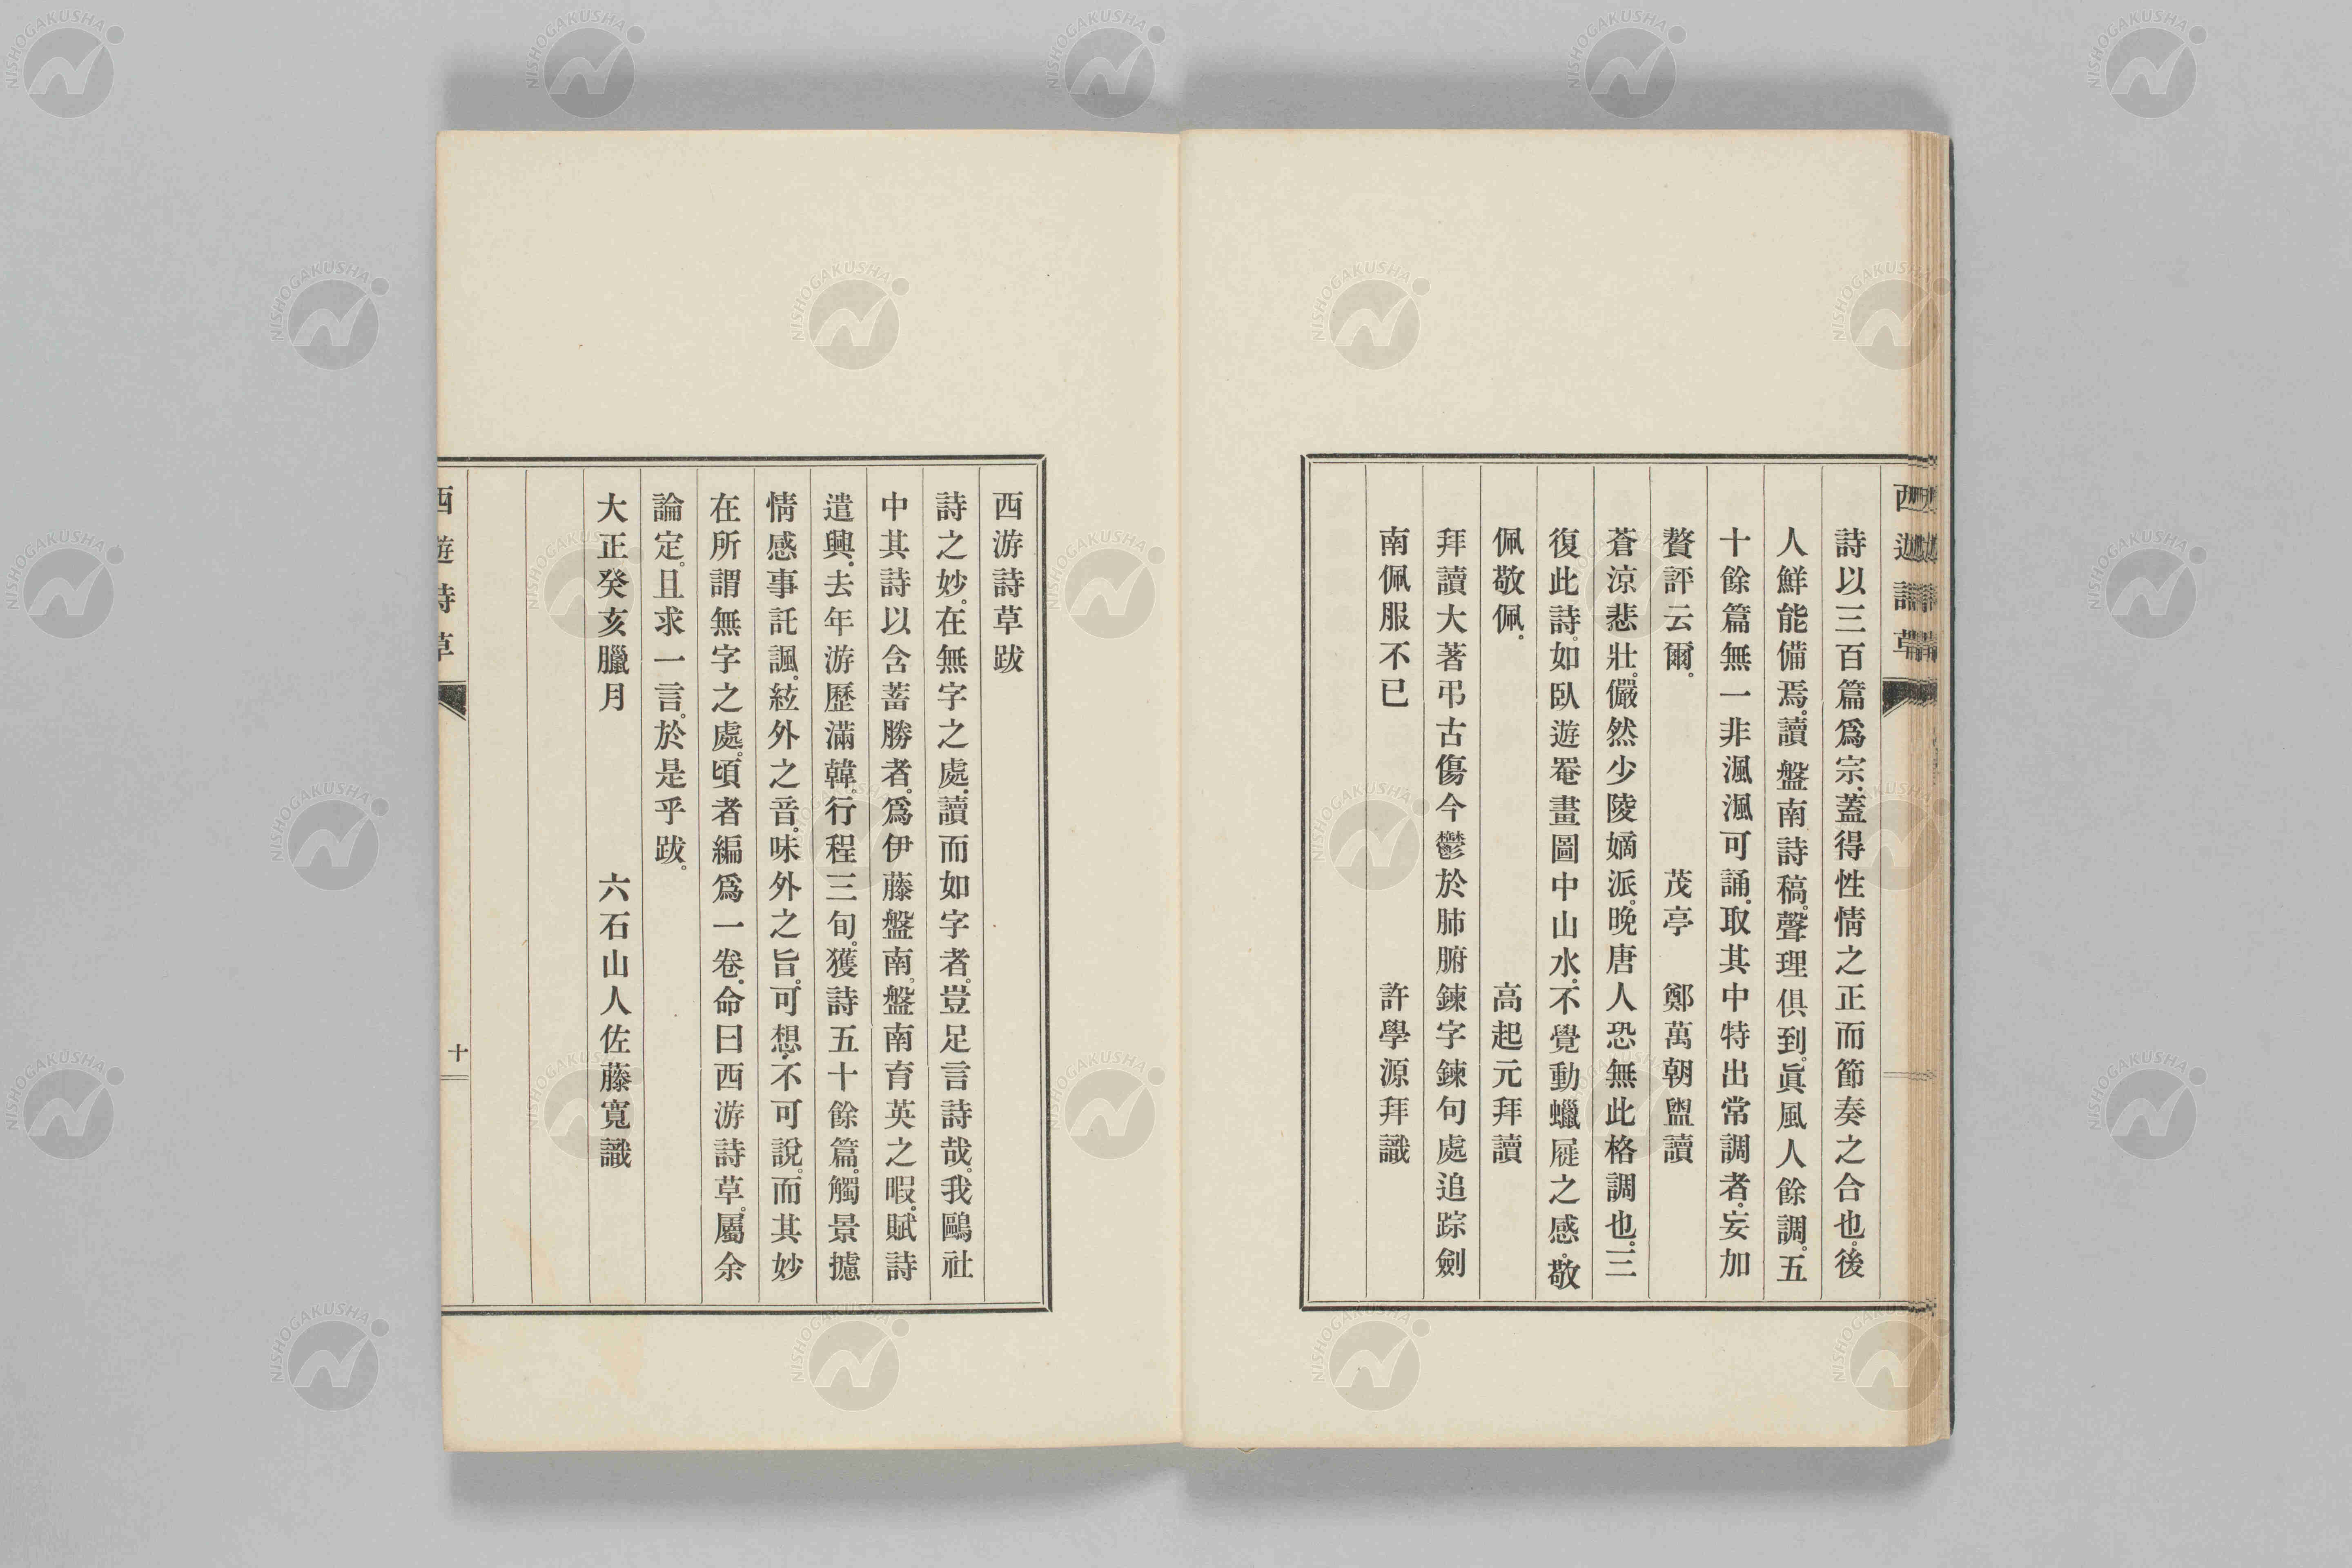 西遊詩草
詩以三百篇爲宗.蓋得性情之正而節奏之合也.後
人鮮能備焉.讀盤南詩稿.聲理俱到.眞風人餘調.五
十餘篇無一非渢渢可誦.取其中特出常調者.妄加
贅評云爾.　茂亭　鄭萬朝盥讀
蒼涼悲壯.儼然少陵嫡派.晚唐人恐無此格調也.三
復此詩.如臥遊罨畫圖中山水.不覺動蠟屣之感.敬
佩敬佩.　高起元拜讀
拜讀大著弔古傷今鬱於肺腑鍊字鍊句處追踪劍
南佩服不已　許學源拜識
西游詩草跋
詩之妙.在無字之處.讀而如字者.豈足言詩哉.我鷗社
中其詩以含蓄勝者.爲伊藤盤南.盤南育英之暇.賦詩
遣興.去年游歷滿韓.行程三旬.獲詩五十餘篇.觸景攄
情感事託諷.絃外之音.味外之旨.可想.不可說.而其妙
在所謂無字之處.頃者編爲一卷.命曰西游詩草.屬余
論定.且求一言.於是乎跋.
大正癸亥臘月　六石山人佐藤寬識
西遊詩草
十
NISHOGAKUSHA